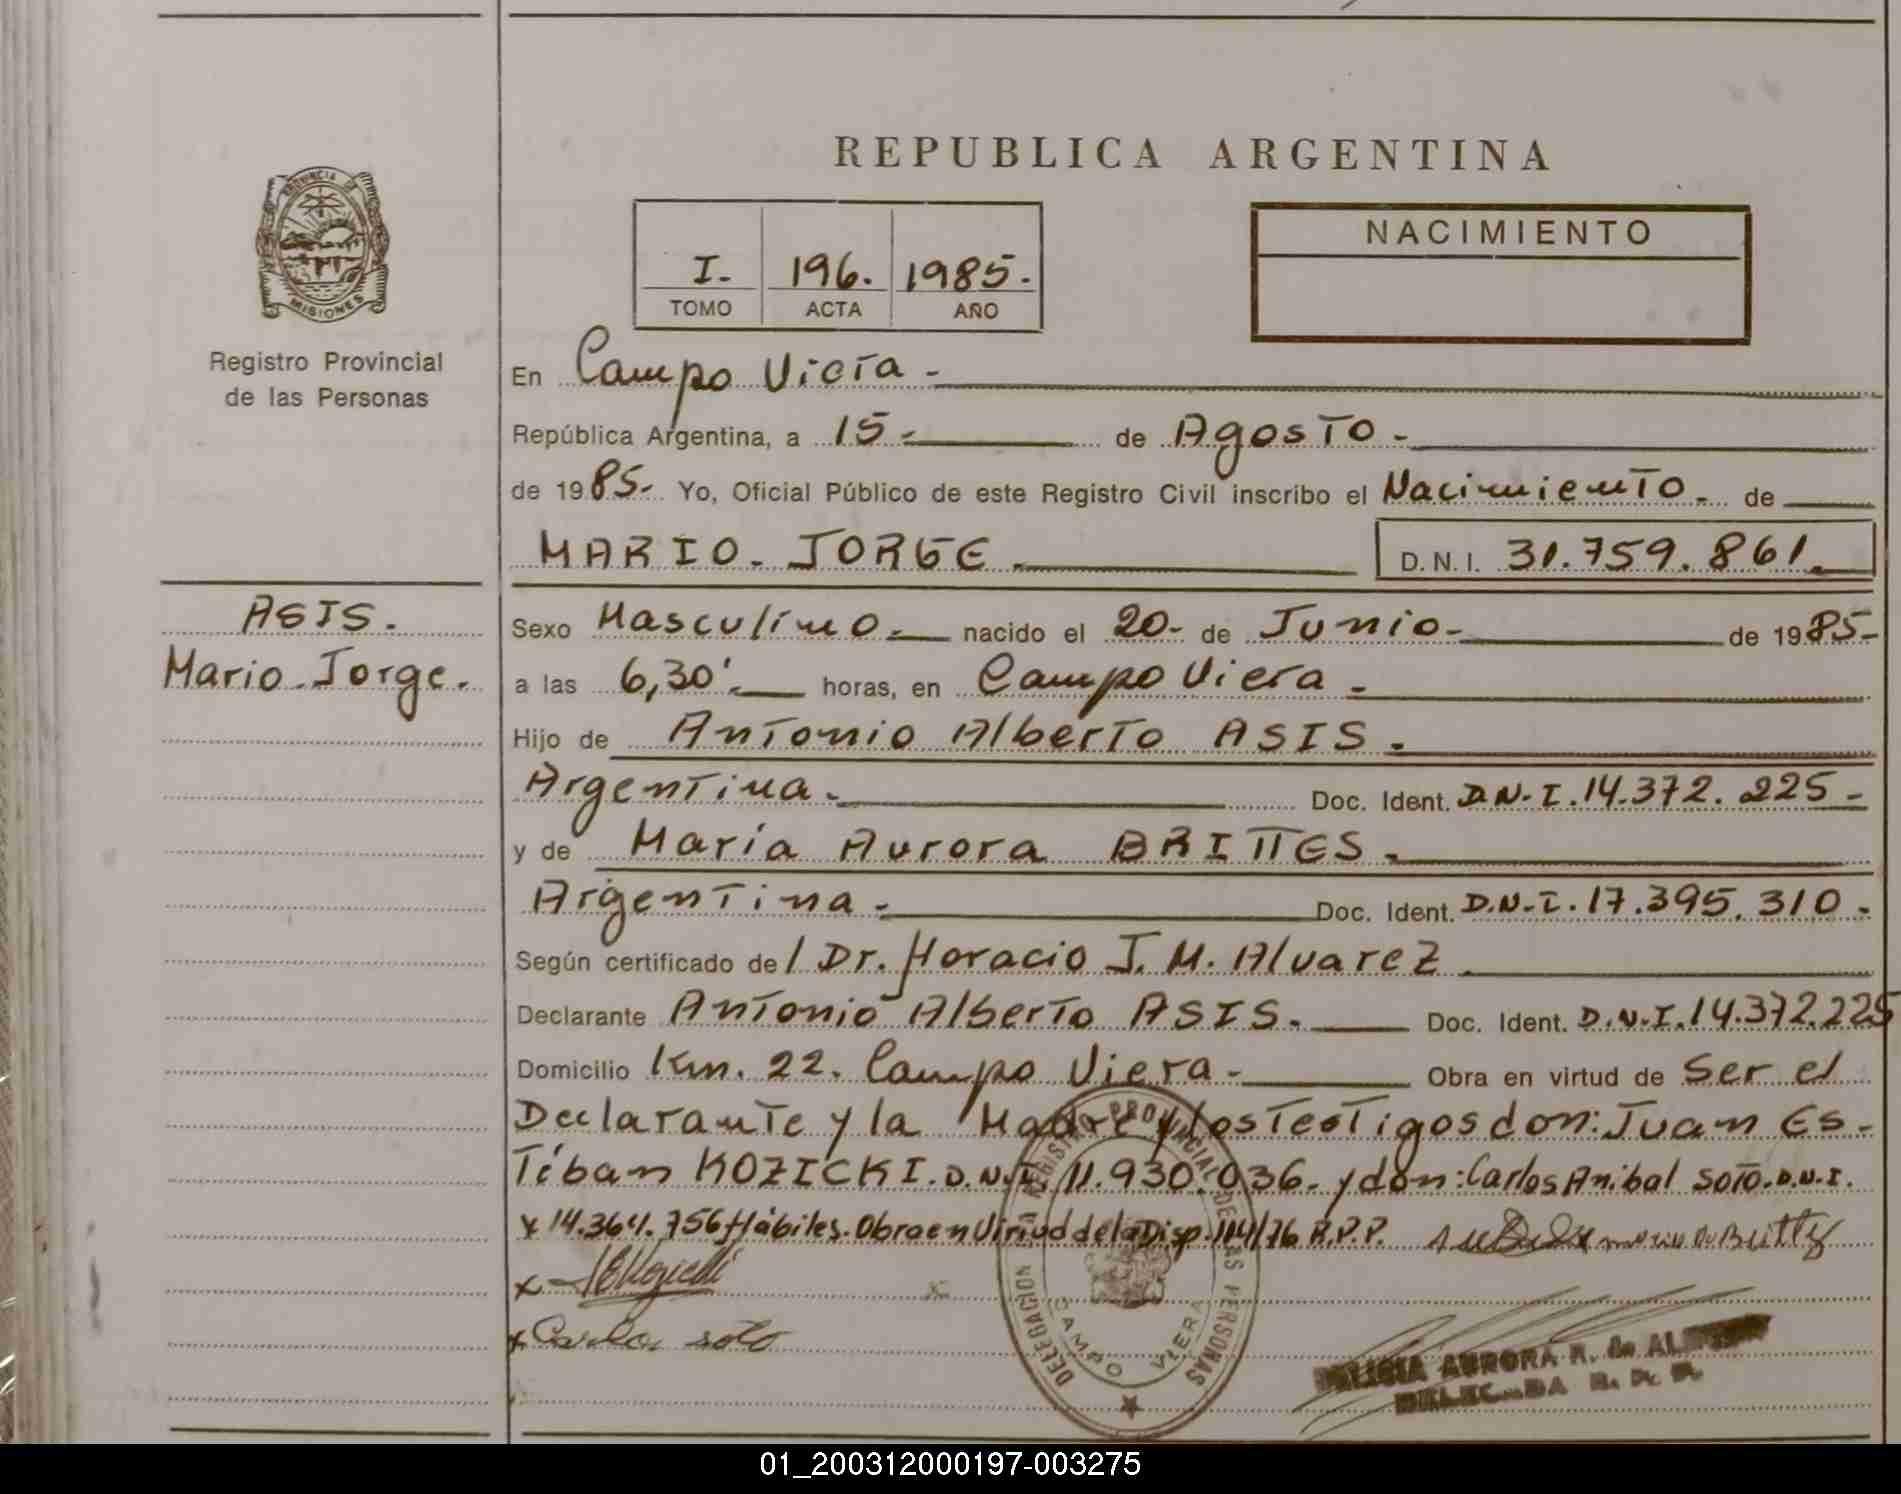 REPUBLICA ARGENTINA
PROVINCIA DE
MISIONES
Registro Provincial
de las Personas
I. 196. 1985.
TOMO ACTA AÑO
NACIMIENTO
En Campo Viera -
República Argentina, a 15 - de Agosto -
de 1985 - Yo, Oficial Público de este Registro Civil inscribo el Nacimiento - de
MARIO - JORGE - D.N.I. 31.759.861.
ASIS.
Mario Jorge.
Sexo Masculino - nacido el 20 - de Junio - de 1985 -
a las 6,30' - horas, en Campo Viera -
Hijo de Antonio Alberto ASIS -
Argentina - Doc. Ident. D.N.I. 14.372.225 -
y de María Aurora BRITTES -
Argentina - Doc. Ident. D.N.I. 17.395.310 -
Según certificado de / Dr. Horacio J. M. Alvarez
Declarante Antonio Alberto ASIS. Doc. Ident. D.N.I. 14.372.225
Domicilio Km. 22. Campo Viera - Obra en virtud de Ser el
Declarante y la Madre y los Testigos don: Juan Es-
teban KOZICKI. D.N.I. 11.930.036. y don: Carlos Anibal Soto. D.N.I.
x 14.364.756 Hábiles. Obra en Virtud de la Disp. 114/76 R.P.P.
x
x Carlos soto
DELEGACION REGISTRO PROVINCIAL DE LAS PERSONAS
CAMPO VIERA
AURORA R. de
01_200312000197-003275